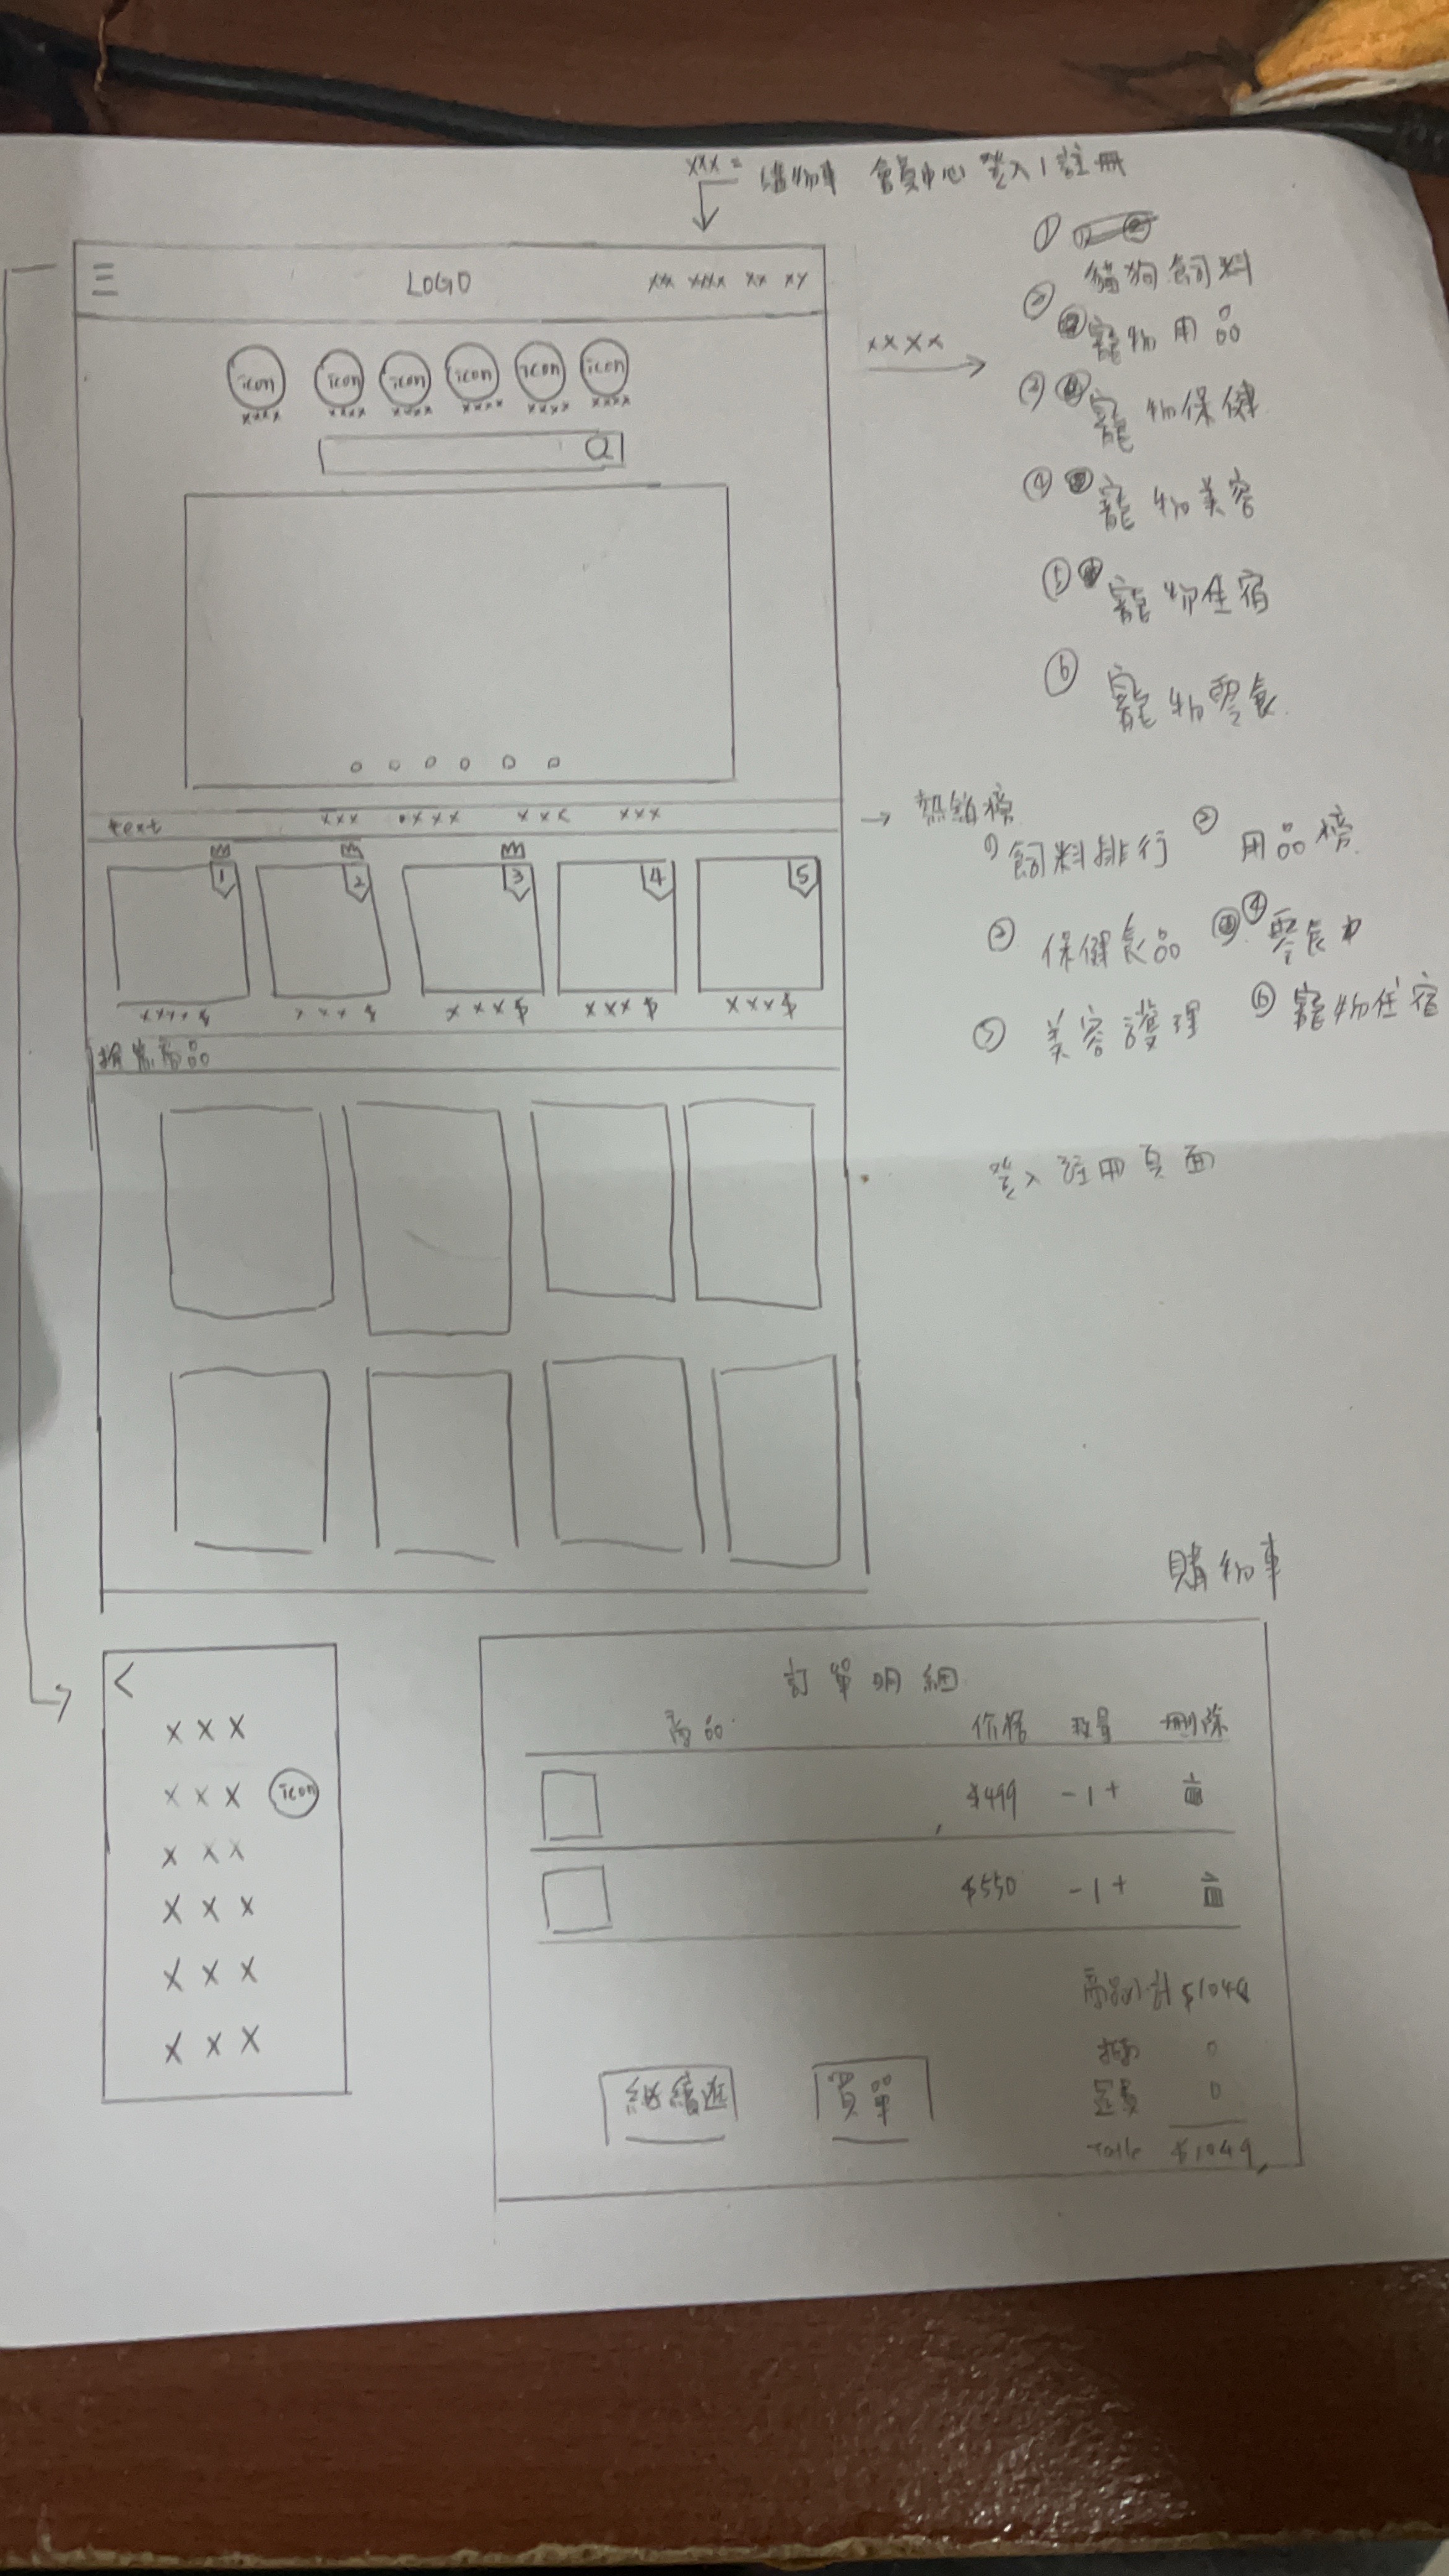 xxx = 購物車 會員中心 登入 | 註冊
LOGO xxx xxxx xx xy
icon icon icon icon icon icon
xxxx xxxx xxxx xxxx xxxx xxxx
xxxx
①
貓狗飼料
② 寵物用品
③ 寵物保健
④ 寵物美容
⑤ 寵物住宿
⑥ 寵物零食
text xxx xxxx xxx xxx
熱銷榜
1) 飼料排行 ② 用品榜
③ 保健食品 ④ 零食
⑤ 美容護理 ⑥ 寵物住宿
1 2 3 4 5
xxxx $ xxx $ xxx $ xxx $ xxx $
推薦商品
登入註冊頁面
購物車
<
xxx
xxx icon
xxx
xxx
xxx
xxx
訂單明細
商品 价格 數量 刪除
$499 - 1 +
$550 - 1 +
商品小計 $1049
0
0
$1049
繼續逛 買單